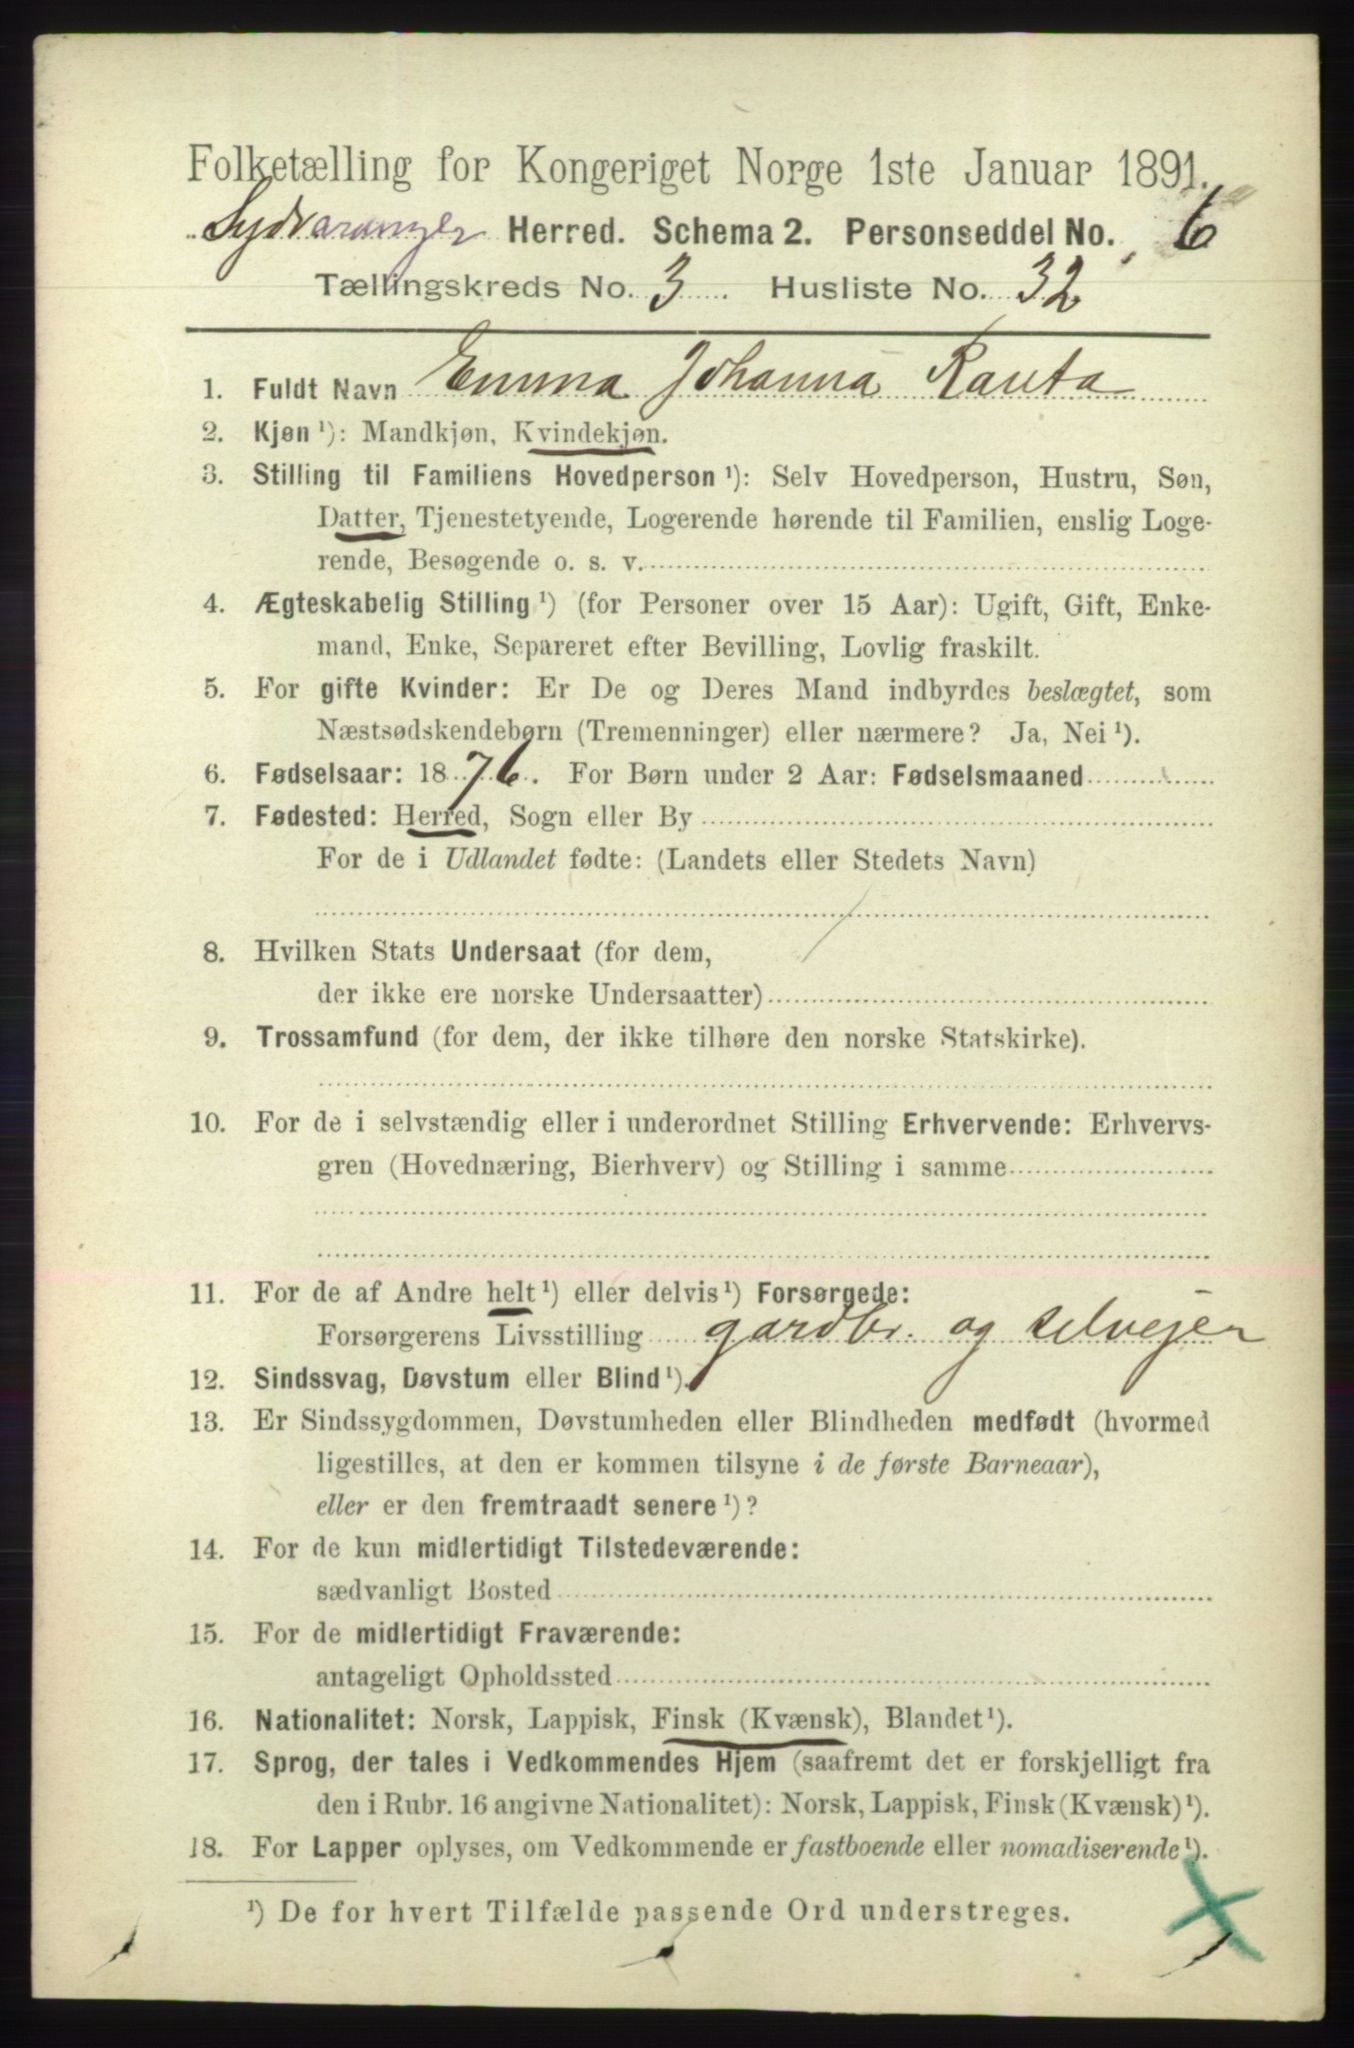 Folketælling for Kongeriget Norge 1ste Januar 1891.
Sydvaranger Herred. Schema 2. Personseddel No. 6
Tællingskreds No. 3 Husliste No. 32
1. Fuldt Navn Emma Johanna Rauta
2. Kjøn ¹): Mandkjøn, Kvindekjøn.
3. Stilling til Familiens Hovedperson ¹): Selv Hovedperson, Hustru, Søn,
Datter, Tjenestetyende, Logerende hørende til Familien, enslig Loge-
rende, Besøgende o. s. v.
4. Ægteskabelig Stilling ¹) (for Personer over 15 Aar): Ugift, Gift, Enke-
mand, Enke, Separeret efter Bevilling, Lovlig fraskilt.
5. For gifte Kvinder: Er De og Deres Mand indbyrdes beslægtet, som
Næstsødskendebørn (Tremenninger) eller nærmere? Ja, Nei ¹).
6. Fødselsaar: 1876. For Børn under 2 Aar: Fødselsmaaned
7. Fødested: Herred, Sogn eller By
For de i Udlandet fødte: (Landets eller Stedets Navn)
8. Hvilken Stats Undersaat (for dem,
der ikke ere norske Undersaatter)
9. Trossamfund (for dem, der ikke tilhøre den norske Statskirke).
10. For de i selvstændig eller i underordnet Stilling Erhvervende: Erhvervs-
gren (Hovednæring, Bierhverv) og Stilling i samme
11. For de af Andre helt ¹) eller delvis ¹) Forsørgede:
Forsørgerens Livsstilling gardbr. og selvejer
12. Sindssvag, Døvstum eller Blind ¹).
13. Er Sindssygdommen, Døvstumheden eller Blindheden medfødt (hvormed
ligestilles, at den er kommen tilsyne i de første Barneaar),
eller er den fremtraadt senere ¹)?
14. For de kun midlertidigt Tilstedeværende:
sædvanligt Bosted
15. For de midlertidigt Fraværende:
antageligt Opholdssted
16. Nationalitet: Norsk, Lappisk, Finsk (Kvænsk), Blandet ¹).
17. Sprog, der tales i Vedkommendes Hjem (saafremt det er forskjelligt fra
den i Rubr. 16 angivne Nationalitet): Norsk, Lappisk, Finsk (Kvænsk) ¹).
18. For Lapper oplyses, om Vedkommende er fastboende eller nomadiserende ¹).
¹) De for hvert Tilfælde passende Ord understreges.